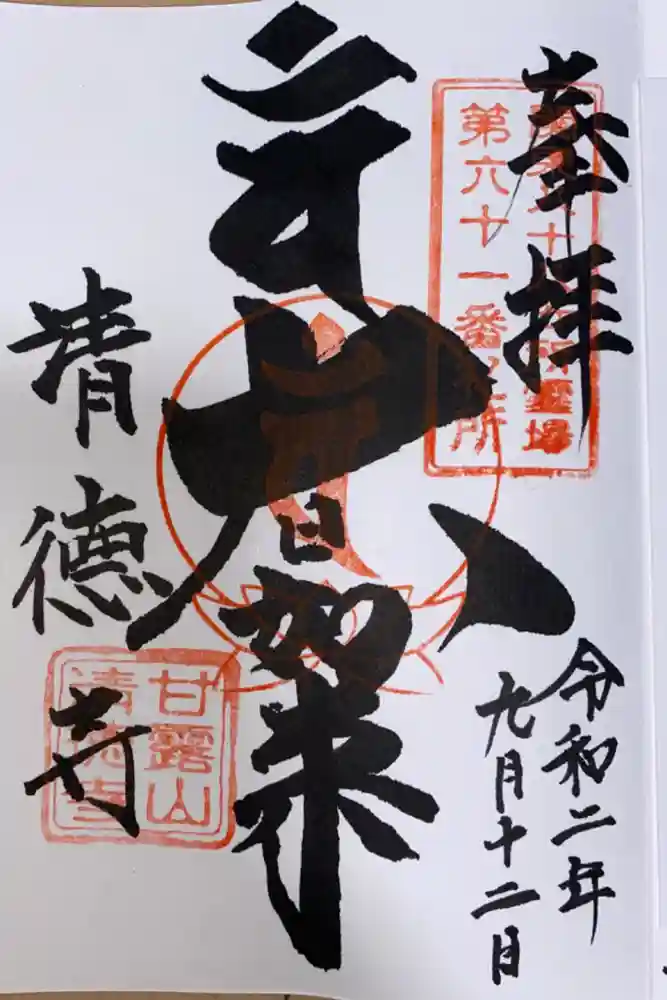 奉拝
所靈場
第六十一番札所
令和二年
九月十二日
大日如来
清徳寺
甘露山
清徳寺